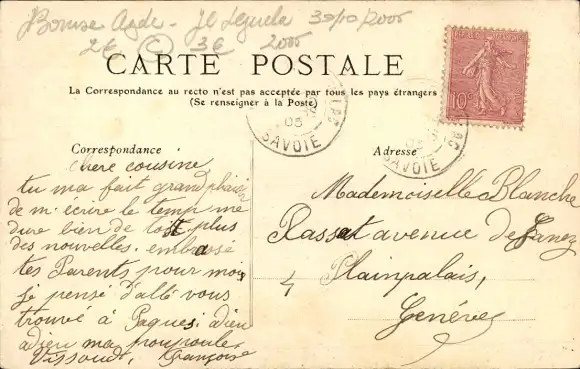 Bourse Agde - 30/10/2000
2€ © 3€ 2000
CARTE POSTALE
La Correspondance au recto n'est pas acceptée par tous les pays étrangers
(Se renseigner à la Poste)
10c
05
SAVOIE
SAVOIE
Correspondance
Adresse
chere cousine
tu ma fait grand plaisir
de m'écrire le temp me
dure bien de plus
des nouvelles. embrasé
tes Parents pour moi
je pensé d'allé vous
trouvé à Paques, adieu
adieu ma poupoule
Françoise
Mademoiselle Blanche
Rassat avenue de
4 Plainpalais,
Genéve